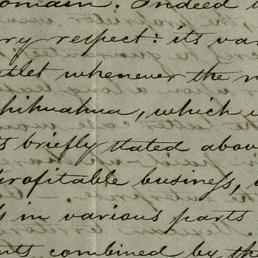 omain. Indeed
ry respect: its va
tlet whenever the
hihuahua, which
s briefly stated abov
profitable business,
s in various parts
nts combined by th